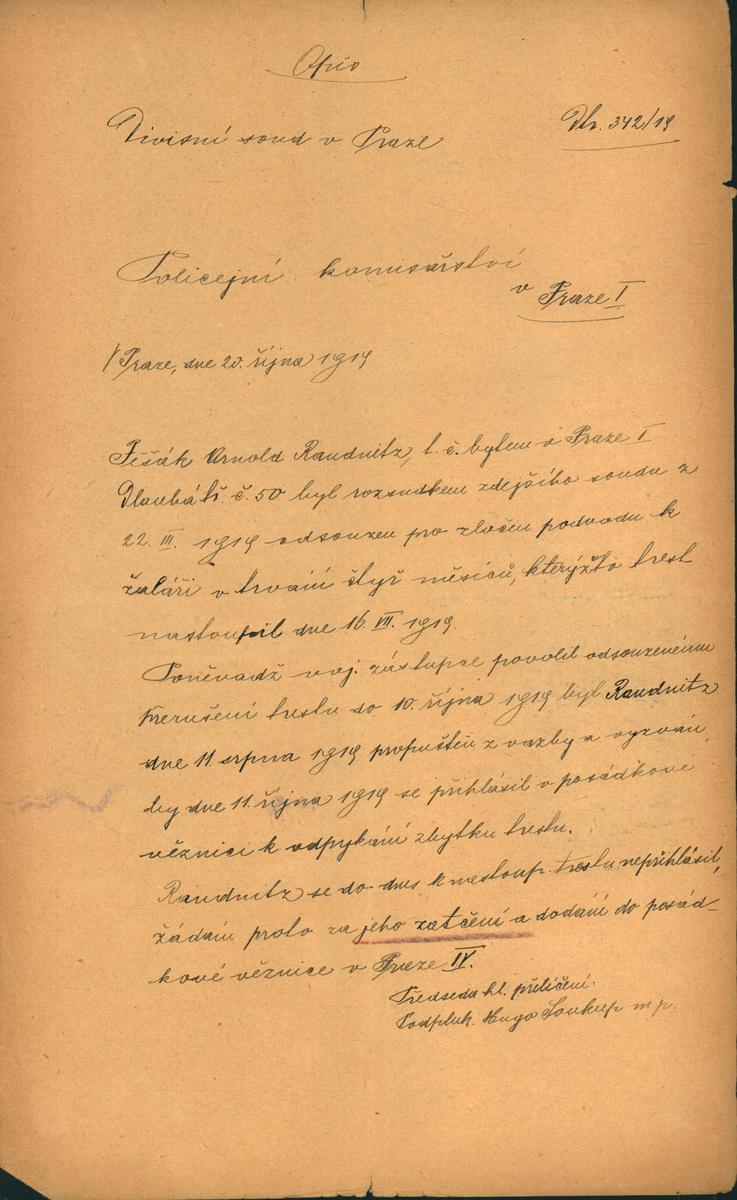 Opis
Divisní soud v Praze
Dtr. 342/19
Policejní komisařství
v Praze I
V Praze, dne 20. října 1919
Pěšák Arnold Raudnitz, t. č. bytem v Praze I
Dlouhá tř. č. 50 byl rozsudkem zdejšího soudu z
22. III. 1919 odsouzen pro zločin podvodu k
žaláři v trvání čtyř měsíců, kterýžto trest
nastoupil dne 16. VII. 1919.
Poněvadž voj. zástupce povolil odsouzenému
přerušení trestu do 10. října 1919 byl Raudnitz
dne 11. srpna 1919 propuštěn z vazby a vyzván,
by dne 11. října 1919 se přihlásil v posádkové
věznici k odpykání zbytku trestu.
Raudnitz se do dnes k nastoup. trestu nepřihlásil,
žádám proto za jeho zatčení a dodání do posád-
kové věznice v Praze IV.
Předseda hl. přelíčení:
Podpluk. Hugo Soukup m p.